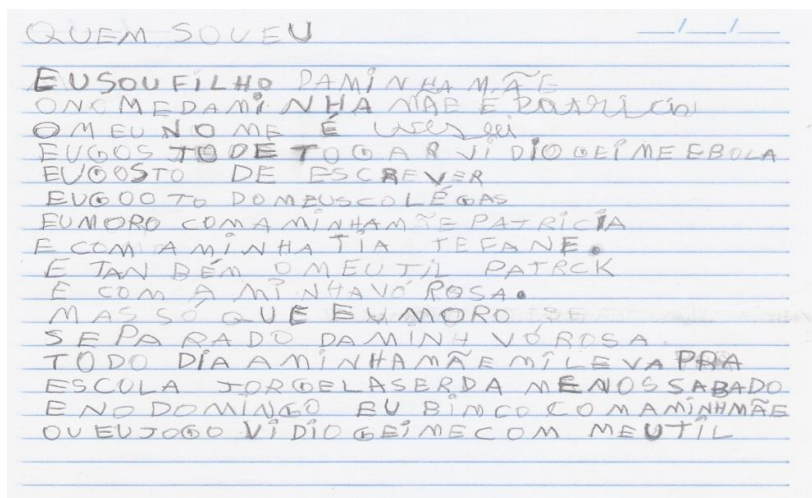 QUEM SOUEU
EUSOUFILHO DAMINHAMÃE
ONOMEDAMINHA MÃE E Patricia
OMEUNOME É
EUGOSTODETOGAR VIDIOGEIMEEBOLA
EUGOSTO DE ESCREVER
EUGOOTO DOMEUSCOLÉGAS
EUMORO COMAMINHAMÃEPATRICIA
E COM AMINHATIA TEFANE.
E TANBÉM OMEUTIL PATRCK
E COM A MINHAVÓROSA.
MAS SÓ QUE EUMORO
SEPARADO DAMINHVÓROSA.
TODO DIAAMINHAMÃEMILEVAPRA
ESCULA JORGELASERDA MENOSSABADO
ENODOMINGO EU BINCO COMAMINHMÃE
OUEUJOGO VIDIOGEIMECOM MEUTIL